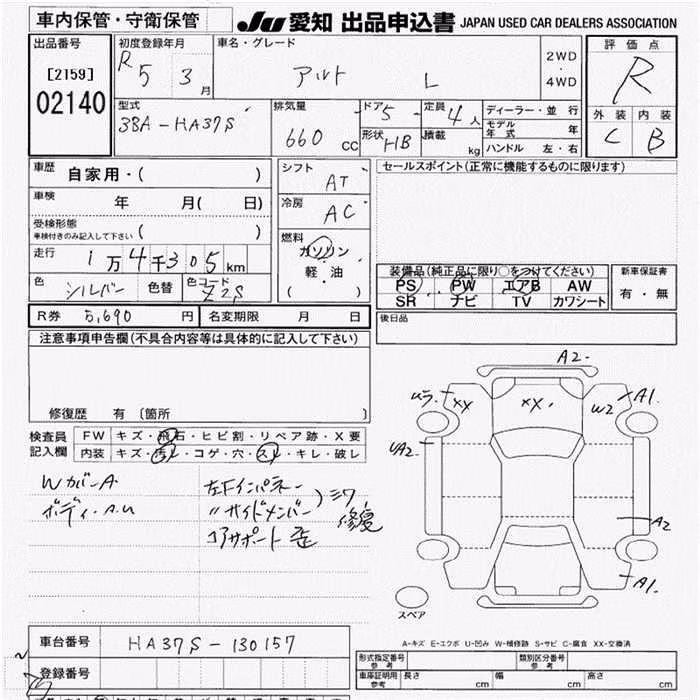 車内保管・守衛保管 JU 愛知 出品申込書 JAPAN USED CAR DEALERS ASSOCIATION
出品番号 初度登録年月 車名・グレード 評価点
[2159] R 5 3月 アルト L 2WD・4WD R
02140
型式 排気量 ドア 5 定員 4人 ディーラー・並行 外装 内装
3BA-HA37S 660cc 形状 HB 積載 kg モデル年式 年 C B
ハンドル 左・右
車歴 自家用・( ) シフト AT セールスポイント(正常に機能するものに限ります)
車検 年 月( 日) 冷房 AC
受検形態 ( )
車検付きのみ記入して下さい
燃料 ガソリン
走行 1万4千305km 軽・油
( )
装備品(純正品に限り○をつけてください) 新車保証書
色 シルバー 色替 色コード Z2S PS PW エアB AW 有・無
SR ナビ TV カワシート
R券 5,690円 名変期限 月 日 後日品
注意事項申告欄(不具合内容等は具体的に記入して下さい)
修復歴 有〔箇所 〕
検査員 FW キズ・飛石・ヒビ割・リペア跡・X要
記入欄 内装 キズ・汚レ・コゲ・穴・スレ・キレ・破レ
WカバーA 左Fインパネー
ボディ・A.U 〃サイドメンバー )シワ修復
コアサポート歪
A2
XX XX W2 A1
UA2
A2
A1
スペア
A-キズ E-エクボ U-凹み W-補修跡 S-サビ C-腐食 XX-交換済
車台番号 HA37S-130157
登録番号
形式指定番号 参考 類別区分番号 参考
車庫証明用 参考 長さ cm 幅 cm 高さ cm